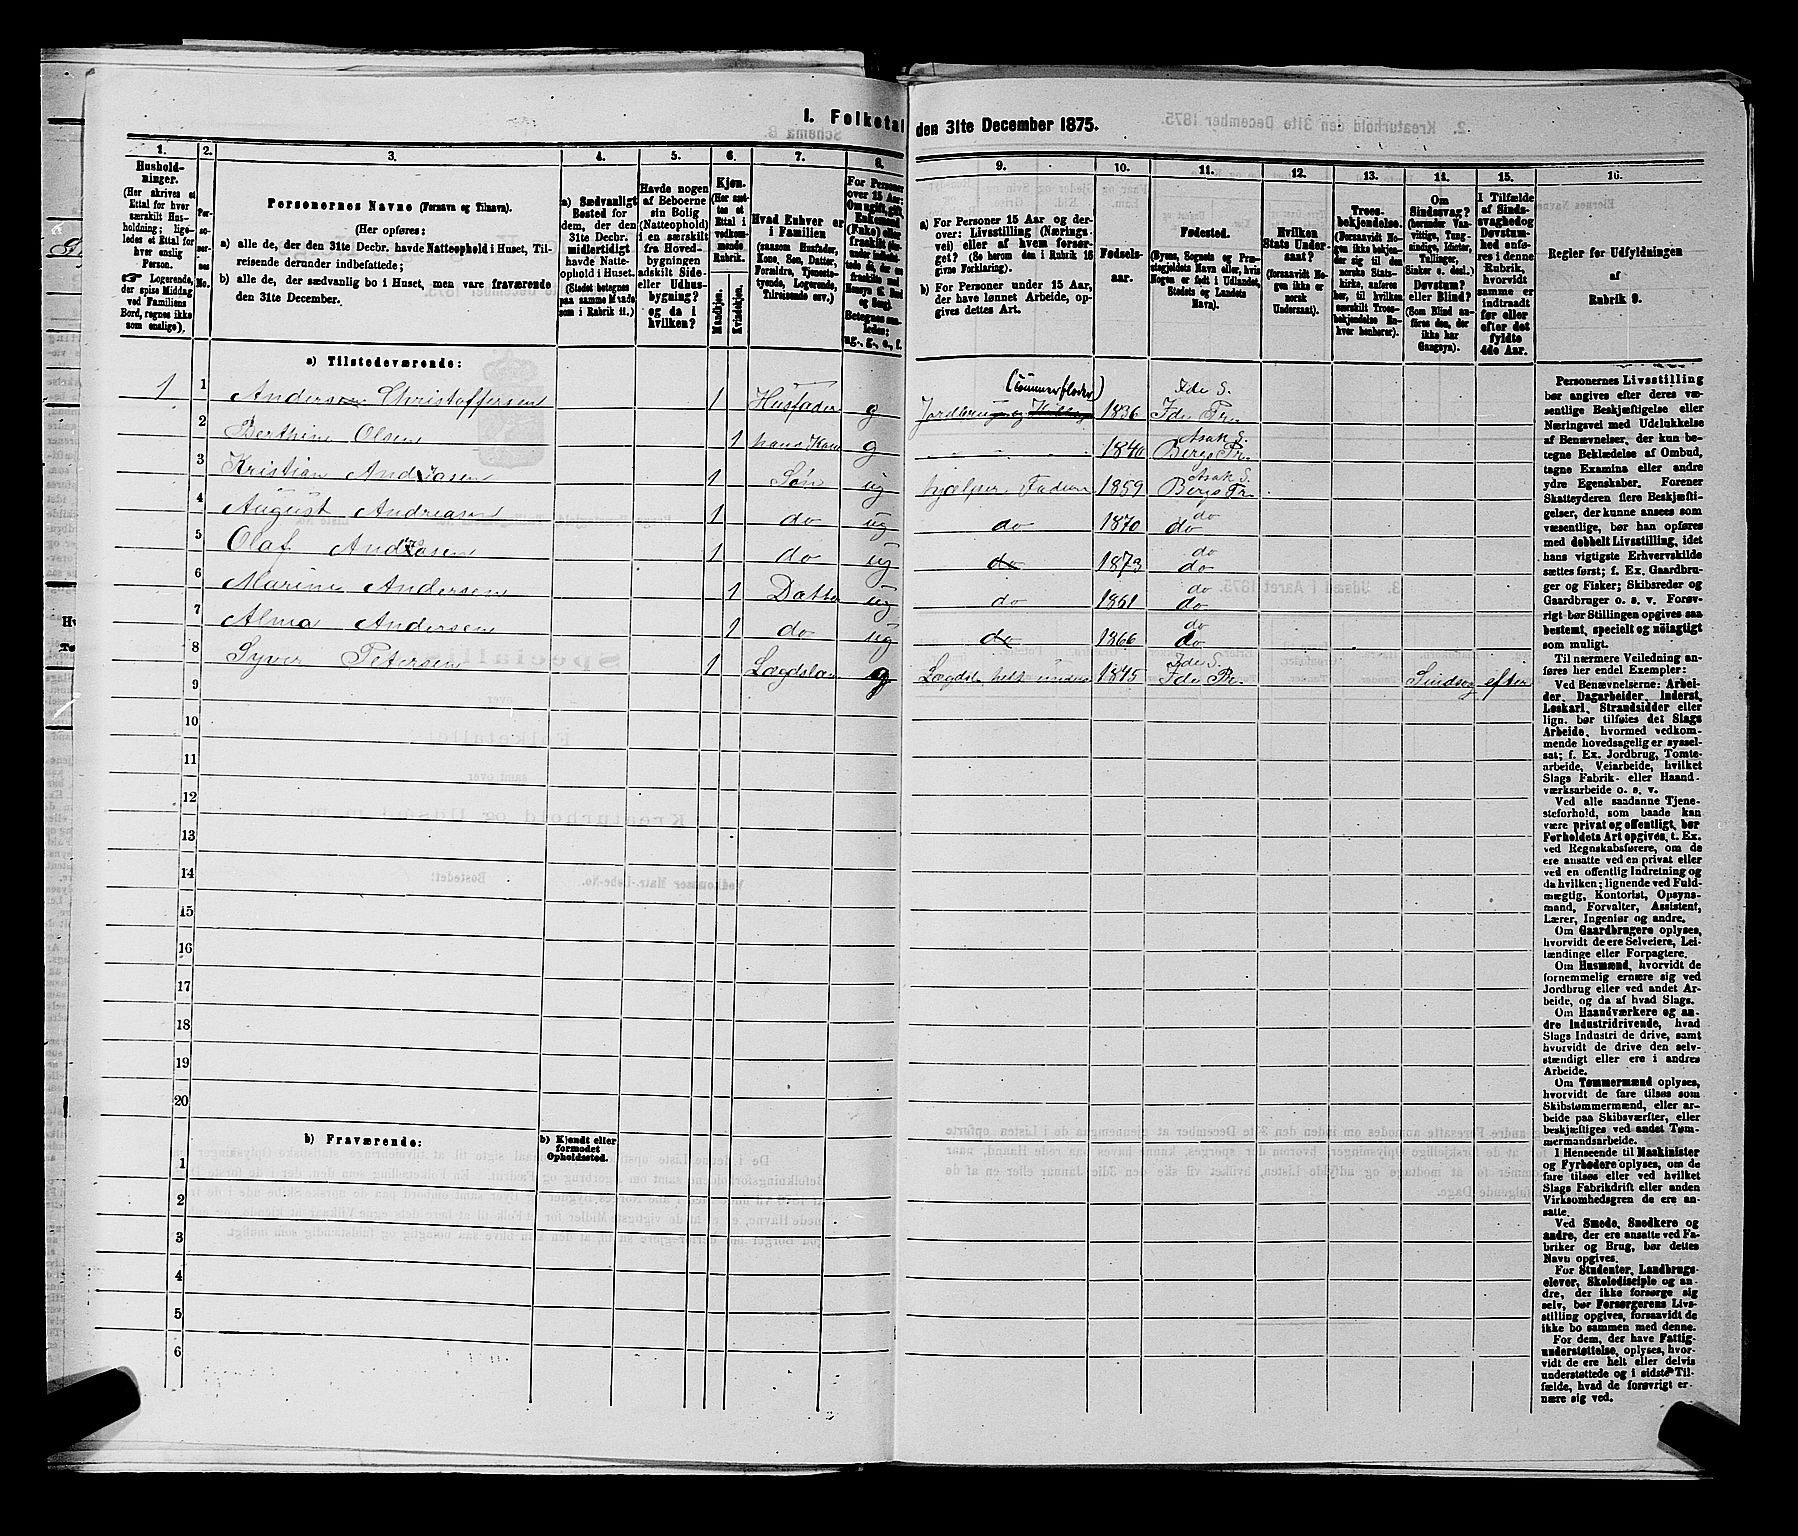 I. Folketal den 31te December 1875.
1.
2.
3.
4.
5.
6.
7.
8.
9.
10.
11.
12.
13.
14.
15.
16.
Hushold-
ninger.
(Her skrives et
Ettal for hver
særskilt Hus-
holdning; lige-
ledes et Ettal for
hver enslig
Person.
☞ Logerende,
der spise Middag
ved Familiens
Bord, regnes ikke
som enslige).
Per-
so-
ner-
nes
No.
Personernes Navne (Fornavn og Tilnavn).
(Her opføres:
a) alle de, der den 31te Decbr. havde Natteophold i Huset, Til-
reisende derunder indbefattede;
b) alle de, der sædvanlig bo i Huset, men vare fraværende
den 31te December.
a) Sædvanligt
Bosted for
dem, der den
31te Decbr.
midlertidigt
havde Natte-
ophold i Huset.
(Stedet betegnes
paa samme Maade
som i Rubrik 11.)
Havde nogen
af Beboerne
sin Bolig
(Natteophold)
i en særskilt
fra Hoved-
bygningen
adskilt Side-
eller Udhus-
bygning?
og da i
hvilken?
Kjøn.
(Her sæt-
tes et
Ettal i
vedkom-
mende
Rubrik.
Mandkjøn.
Kvindekjøn.
Hvad Enhver er
i Familien
(saasom Husfader,
Kone, Søn, Datter,
Forældre, Tjeneste-
tyende, Logerende,
Tilreisende osv.)
For Personer
over 15 Aar:
Om ugift, gift,
Enkemand
(Enke) eller
fraskilt
a) For Personer 15 Aar og der-
over: Livsstilling (Nærings-
vei) eller af hvem forsør-
get? (Se herom den i Rubrik 16
givne Forklaring).
b) For Personer under 15 Aar,
der have lønnet Arbeide, op-
gives dettes Art.
Fødsels-
aar.
Fødested.
(Byens, Sognets og Præ-
stegjeldets Navn eller, hvis
Nogen er født i Udlandet,
Stedets og Landets
Navn).
Hvilken
Stats Under-
saat?
(forsaavidt No-
gen ikke er
norsk
Undersaat).
Troes-
bekjendelse.
(Forsaavidt No-
gen ikke bekjen-
der sig til den
norske Stats-
kirke, anføres
her, til hvilken
særskilt Troes-
bekjendelse En-
hver henhører).
Om
Sindssvag?
(herunder Van-
vittige, Tung-
sindige, Idioter,
Tullinger,
Sinker o. desl.)
Døvstum?
eller Blind?
(Som Blind an-
føres den, der
ikke har
Gangsyn).
I Tilfælde
af Sinds-
svaghed og
Døvstum-
hed anfø-
res i denne
Rubrik,
hvorvidt
samme er
indtraadt
før eller
efter det
fyldte
4de Aar.
Regler for Udfyldningen
af
Rubrik 9.
a) Tilstedeværende:
1 1 Anders Christoffersen 1 Husfader g Jordbrug (Tømmerfløder) 1836 Ide S. Ide Pr.
2 Berthine Olsen 1 hans Kone g 1840 Asak S. Bergs Pr.
3 Kristian Andreasen 1 Søn ug hjælper Faderen 1859 Asak S. Bergs Pr.
4 August Andreasen 1 do ug do 1870 do do
5 Olaf Andreasen 1 do ug do 1873 do do
6 Marine Andersen 1 Datter ug do 1861 do do
7 Alma Andersen 1 do ug do 1866 do do
8 Syver Petersen 1 Lægdslem g Lægdsl. helt underst. 1845 Ide S. Ide Pr. Sindssvag efter
9
10
11
12
13
14
15
16
17
18
19
20
b) Fraværende:
b) Kjendt eller
formodet
Opholdssted.
1
2
3
4
5
6
Personernes Livsstilling
bør angives efter deres væ-
sentlige Beskjæftigelse eller
Næringsvei med Udelukkelse
af Benævnelser, der kun be-
tegne Beklædelse af Ombud,
tagne Examina eller andre
ydre Egenskaber. Forener
Skatteyderen flere Beskjæfti-
gelser, der kunne ansees som
væsentlige, bør han opføres
med dobbelt Livsstilling, idet
hans vigtigste Erhvervskilde
sættes først; f. Ex. Gaardbru-
ger og Fisker; Skibsreder og
Gaardbruger o. s. v. Forøv-
rigt bør Stillingen opgives saa
bestemt, specielt og nöiagtigt
som muligt.
Til nærmere Veiledning an-
føres her endel Exempler:
Ved Benævnelserne: Arbei-
der, Dagarbeider, Inderst,
Løskarl, Strandsidder eller
lign. bør tilføies det Slags
Arbeide, hvormed vedkom-
mende hovedsagelig er syssel-
sat; f. Ex. Jordbrug, Tomte-
arbeide, Veiarbeide, hvilket
Slags Fabrik- eller Haand-
værksarbeide o. s. v.
Ved alle saadanne Tjene-
steforhold, som baade kan
være privat og offentligt, bør
Forholdets Art opgives, t. Ex.
ved Regnskabsførere, om de
ere ansatte ved en privat eller
ved en offentlig Indretning og
da hvilken; lignende ved Fuld-
mægtig, Kontorist, Opsyns-
mand, Forvalter, Assistent,
Lærer, Ingeniør og andre.
Om Gaardbrugere oplyses,
hvorvidt de ere Selveiere, Lei-
lændinge eller Forpagtere.
Om Husmænd, hvorvidt de
fornemmelig ernære sig ved
Jordbrug eller ved andet Ar-
beide, og da af hvad Slags.
Om Haandværkere og an-
dre Industridrivende, hvad
Slags Industri de drive, samt
hvorvidt de drive den selv-
stændigt eller ere i andres
Arbeide.
Om Tømmermænd oplyses,
hvorvidt de fare tilsøs som
Skibstømmermænd, eller ar-
beide paa Skibsværfter, eller
beskjæftiges ved andet Tøm-
mermandsarbeide.
I Henseende til Maskinister
og Fyrbødere oplyses, om de
fare tilsøs eller ved hvilket
Slags Fabrikdrift eller anden
Virksomhedsgren de ere an-
satte.
Ved Smede, Snedkere og
andre, der ere ansatte ved Fa-
briker og Brug, bør dettes
Navn opgives.
For Studenter, Landbrugs-
elever, Skoledisciple og an-
dre, der ikke forsørge sig
selv, bør Forsørgerens Livs-
stilling opgives, forsaavidt de
ikke bo sammen med denne.
For dem, der have Fattig-
understøttelse, oplyses, hvor-
vidt de ere helt eller delvis
understøttede og i sidste Til-
fælde, hvad de forøvrigt er-
nære sig ved.